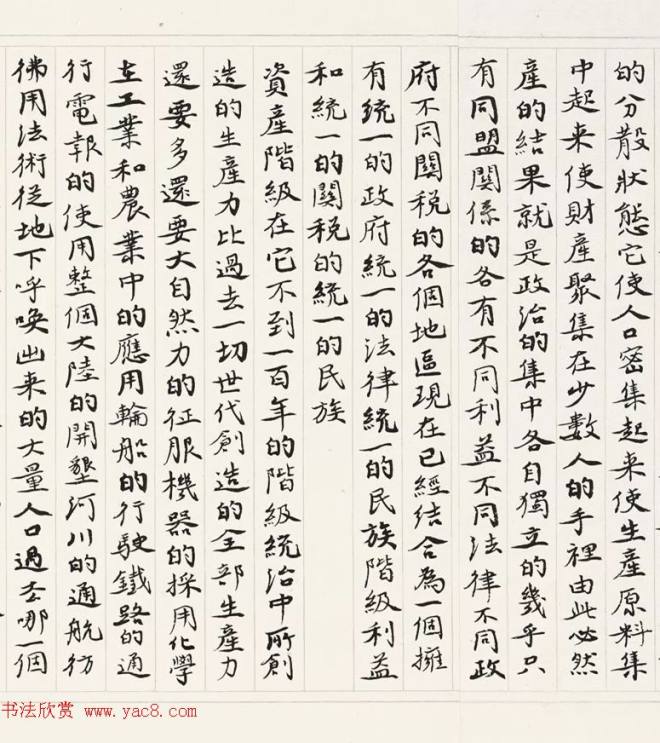 的分散狀態它使人口密集起来使生產原料集
中起来使財產聚集在少數人的手裡由此必然
產的結果就是政治的集中各自獨立的幾乎只
有同盟關係的各有不同利益不同法律不同政
府不同關税的各個地區現在已經结合為一個擁
有统一的政府統一的法律統一的民族階級利益
和統一的關税的統一的民族
資產階級在它不到一百年的階級統治中所創
造的生產力比過去一切世代創造的全部生產力
還要多還要大自然力的征服機器的採用化學
在工業和農業中的應用輪船的行駛鐵路的通
行電報的使用整個大陸的開墾河川的通航彷
彿用法術從地下呼唤出来的大量人口過去哪一個
书法欣赏 www.yac8.com